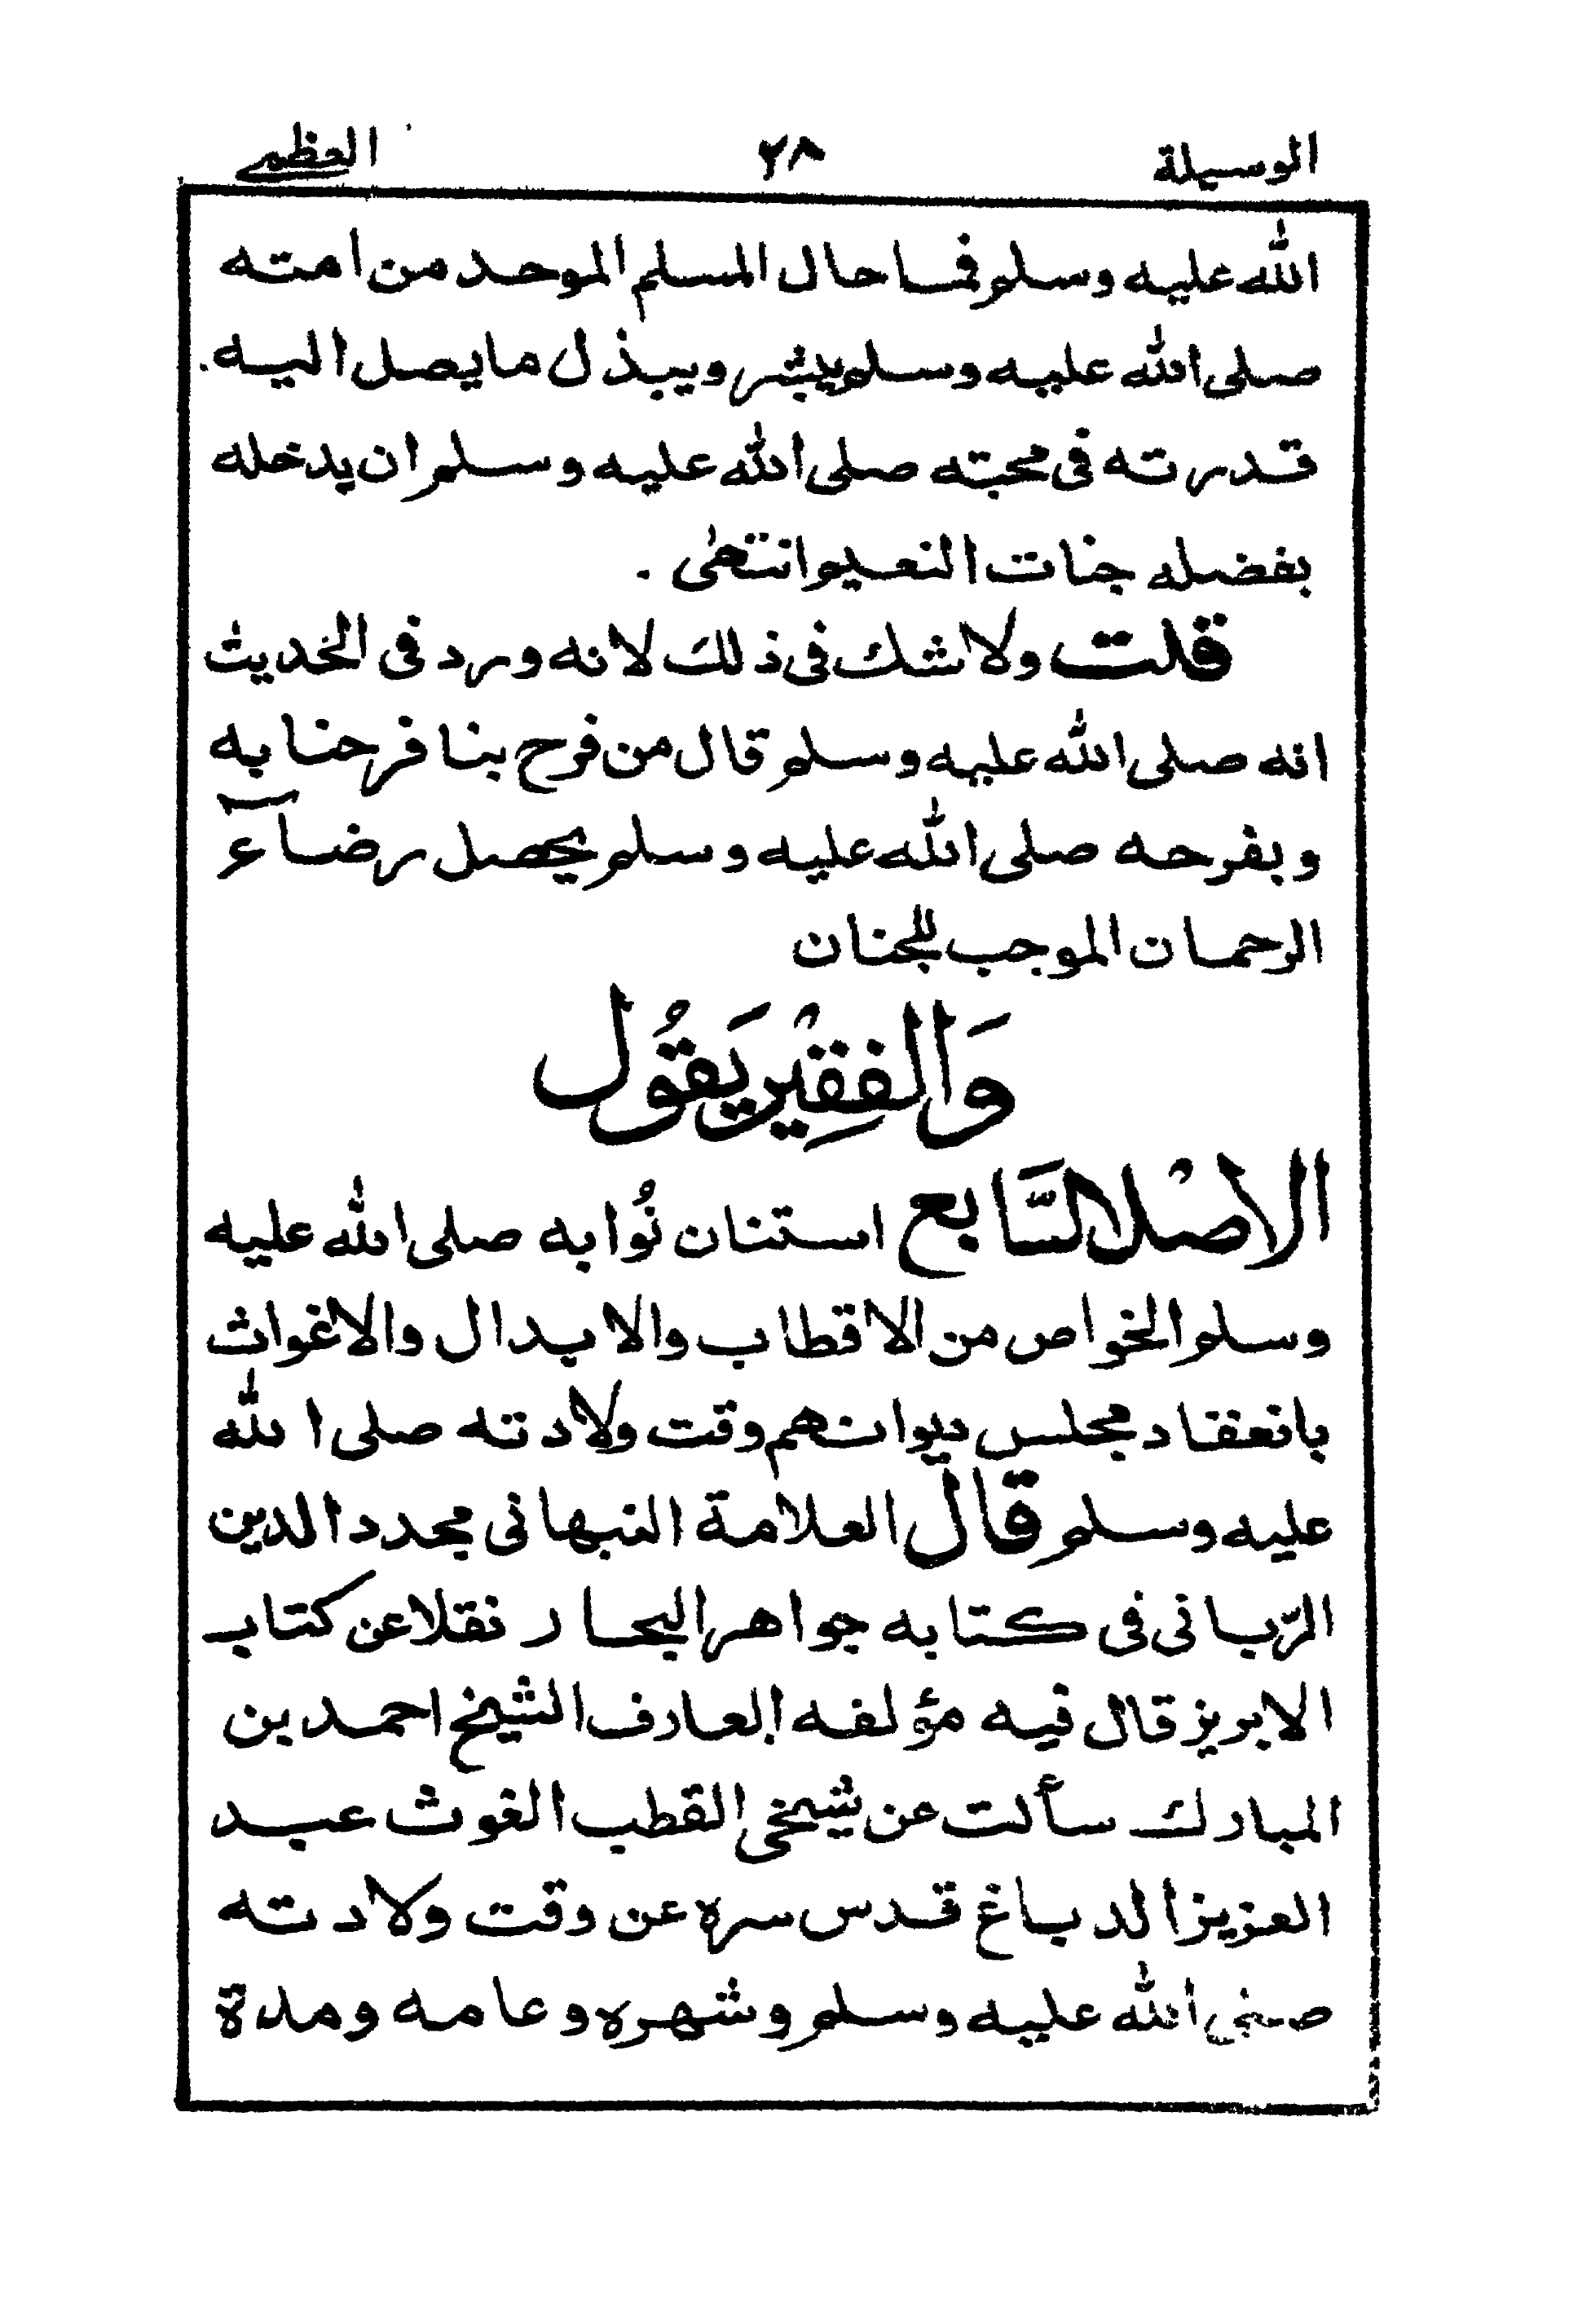 الوسيلة ٢٨ العظمى
الله عليه وسلم فما حال المسلم الموحد من امته
صلى الله عليه وسلم يبشر ويبذل ما يصل اليه.
قدرته فى محبته صلى الله عليه وسلم ان يدخله
بفضله جنات النعيم انتهى .
قلت ولا شك فى ذلك لانه ورد فى الحديث
انه صلى الله عليه وسلم قال من فرح بنا فرحنا به
وبفرحه صلى الله عليه وسلم يحصل رضآء
الرحمان الموجب للجنان
وَالفِقِيْر يَقُول
الاصْل السَّابع استنان نُوابه صلى الله عليه
وسلم الخواص من الاقطاب والابدال والاغواث
بانعقاد مجلس ديوانهم وقت ولادته صلى الله
عليه وسلم قال العلامة النبهانى مجدد الدين
الرّبانى فى كتابه جواهر البحار نقلا عن كتاب
الابريز قال فيه مؤلفه العارف الشيخ احمد بن
المبارك سألت عن شيخى القطب الغوث عبد
العزيز الدباغ قدس سره عن وقت ولادته
صلى الله عليه وسلم وشهره وعامه ومدة